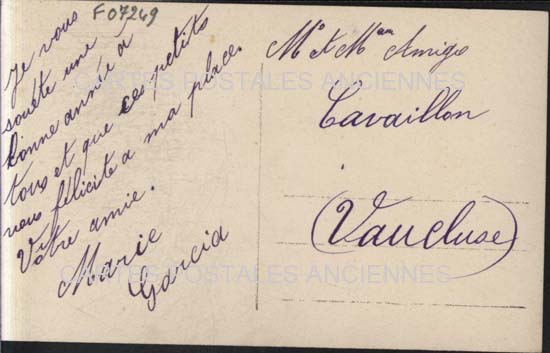 F07249
Je vous
souète une
bonne année à
tous et que ces petits
vous félicite a ma place.
Vôtre amie.
Marie
Garcia
Mr et Mme Amigo
Cavaillon
(Vaucluse)
CARTES POSTALES ANCIENNES
CARTES POSTALES ANCIENNES